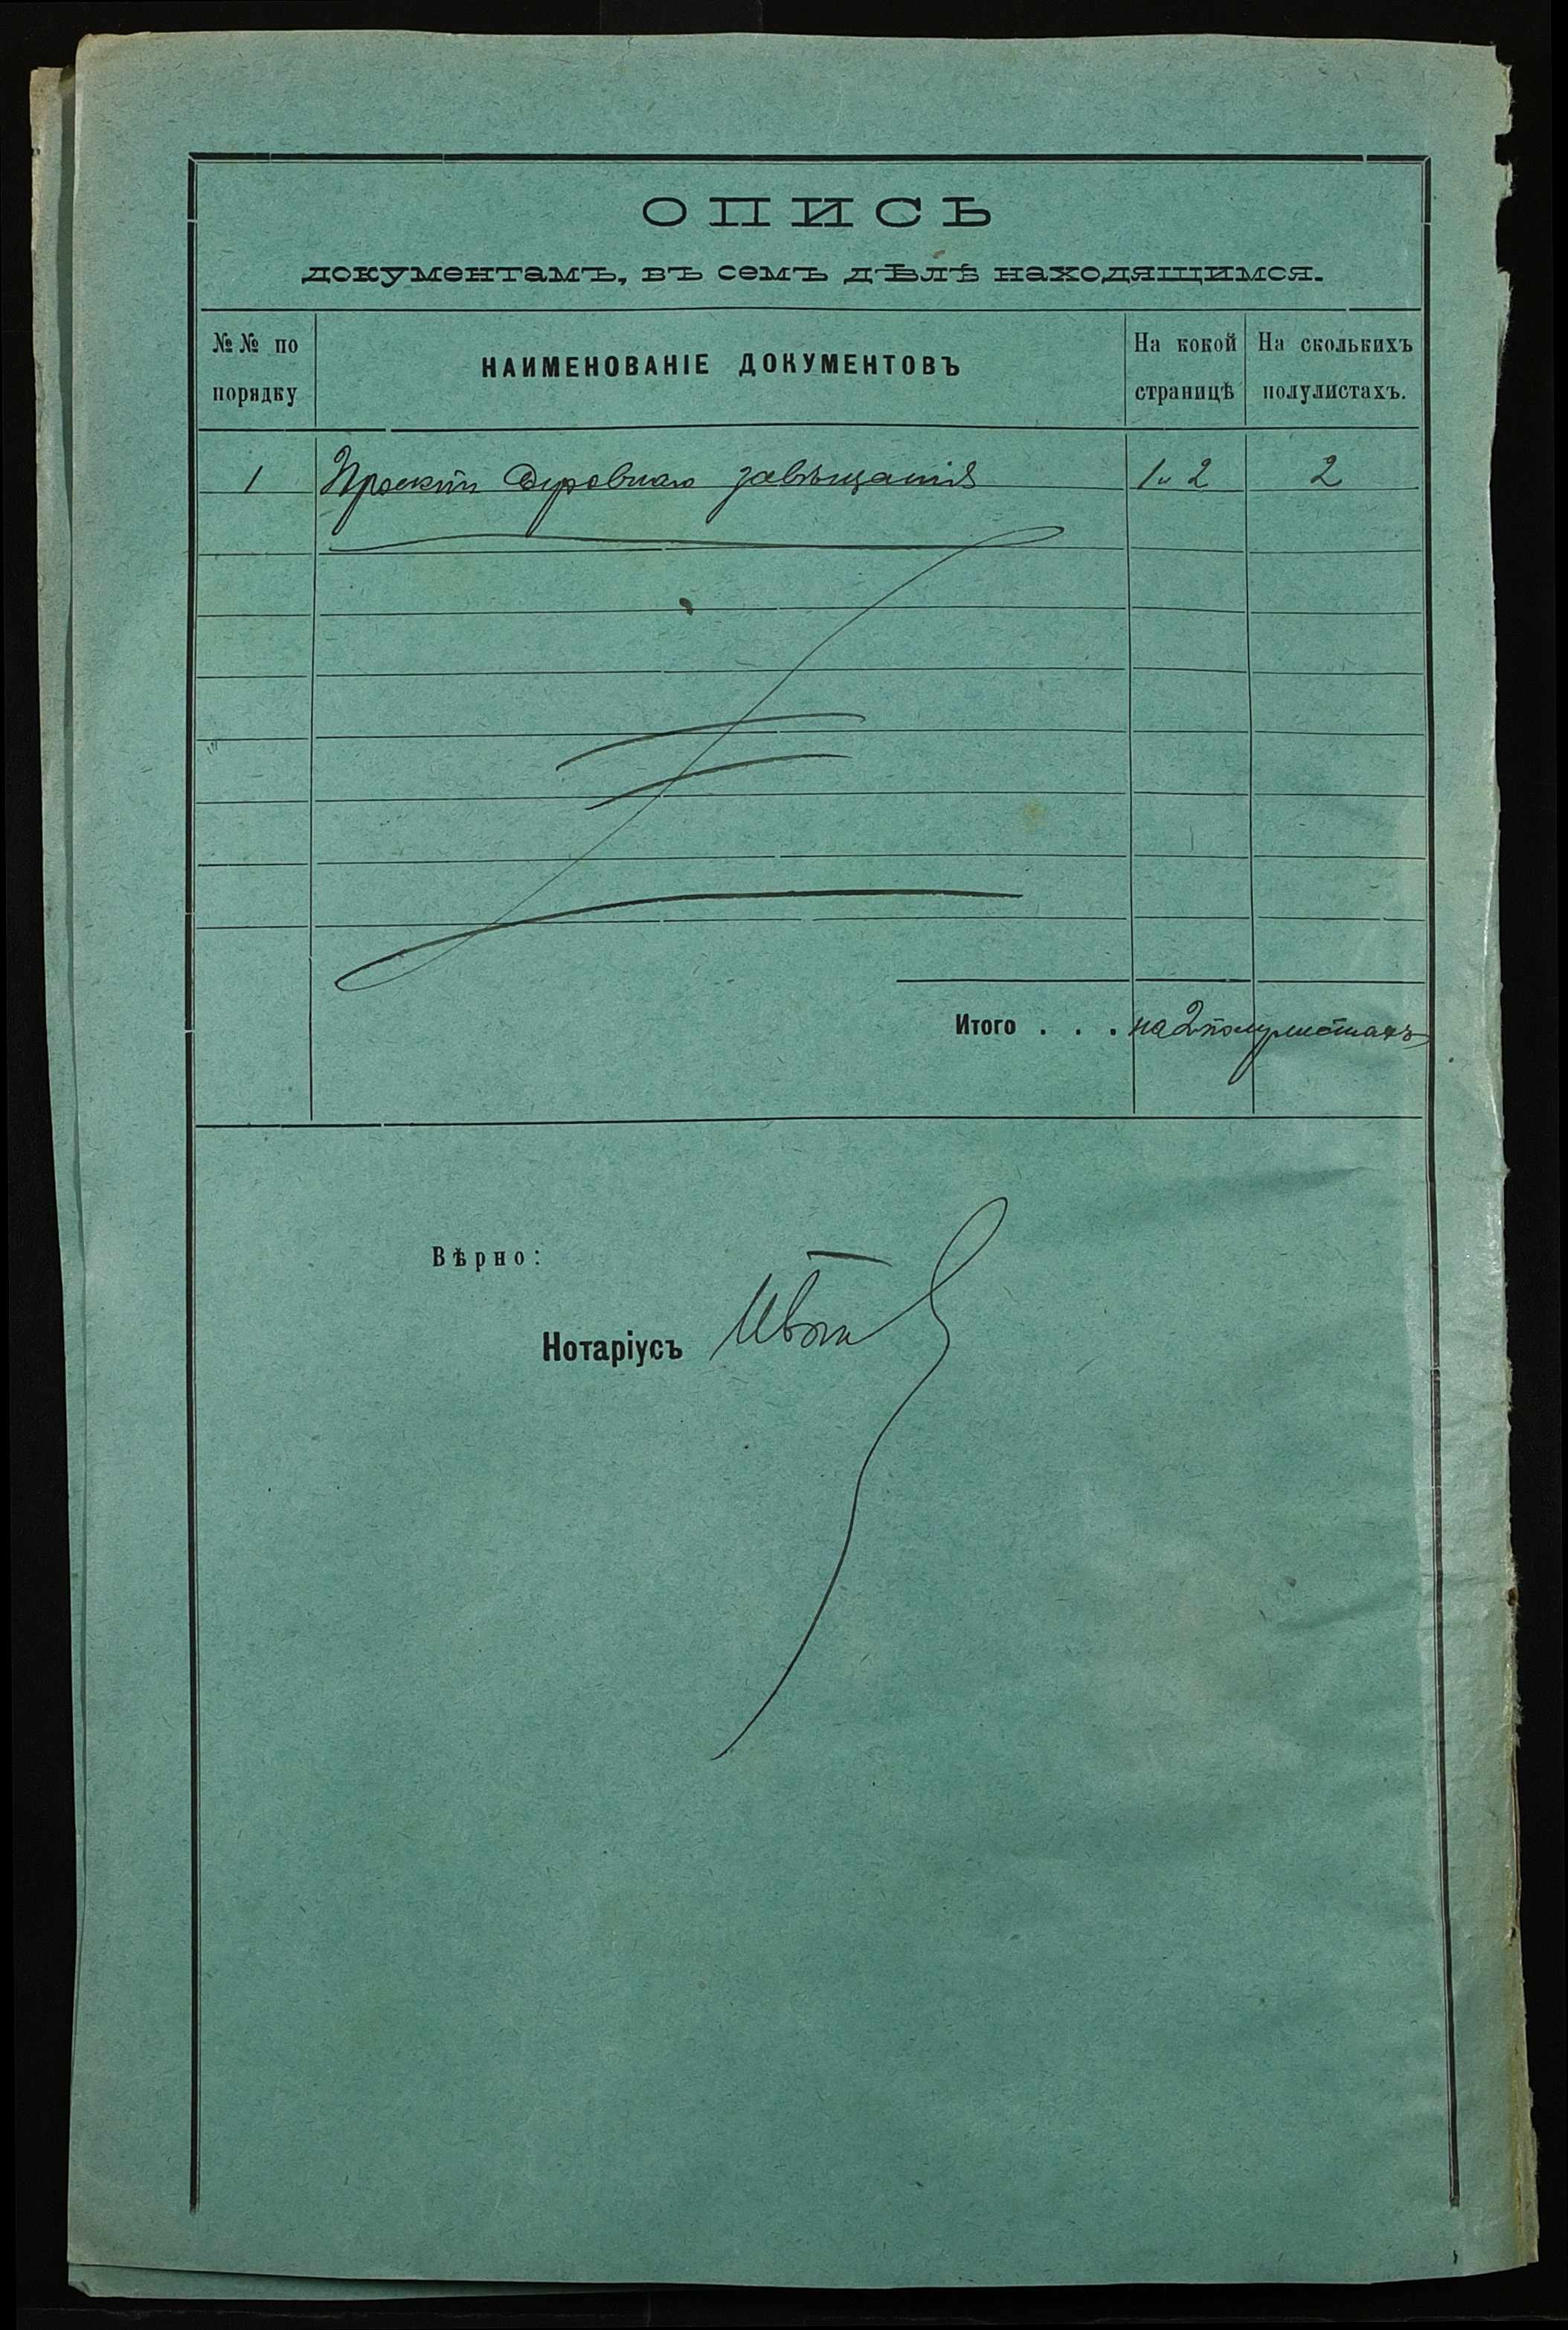 ОПИСЬ
документамъ, въ семъ дѣлѣ находящимся.
№№ по порядку
НАИМЕНОВАНІЕ ДОКУМЕНТОВЪ
На кокой страницѣ
На сколькихъ полулистахъ.
1 Проектъ духовнаго завѣщанія 1 и 2 2
Итого . . . на 2 полулистахъ
Вѣрно:
Нотаріусъ